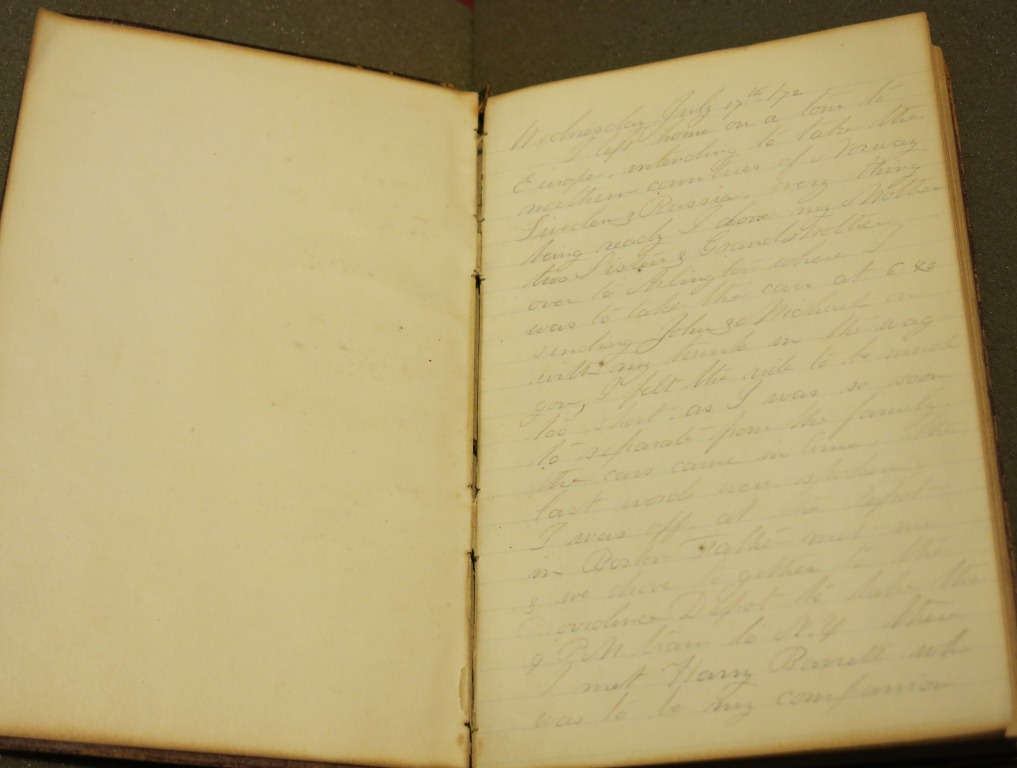 Wednesday July 17th /72
I left home on a tour to
Europe, intending to take the
northern countries of Norway
Sweden & Russia, every thing
being ready I drove my Mother
two Sisters & Grand Mother
over to Arlington where I
was to take the cars at 6.40
sending John & Michael on
with my trunk in the wag
gon, I felt the ride to be much
too short as I was so soon
to separate from the family
the cars came in time the
last words were spoken &
I was off at the depot
in Boston Father met me
& we drove to gether to the
Providence Depot to take the
9 P.M train to N.Y there
I met Harry Barrett who
was to be my companion